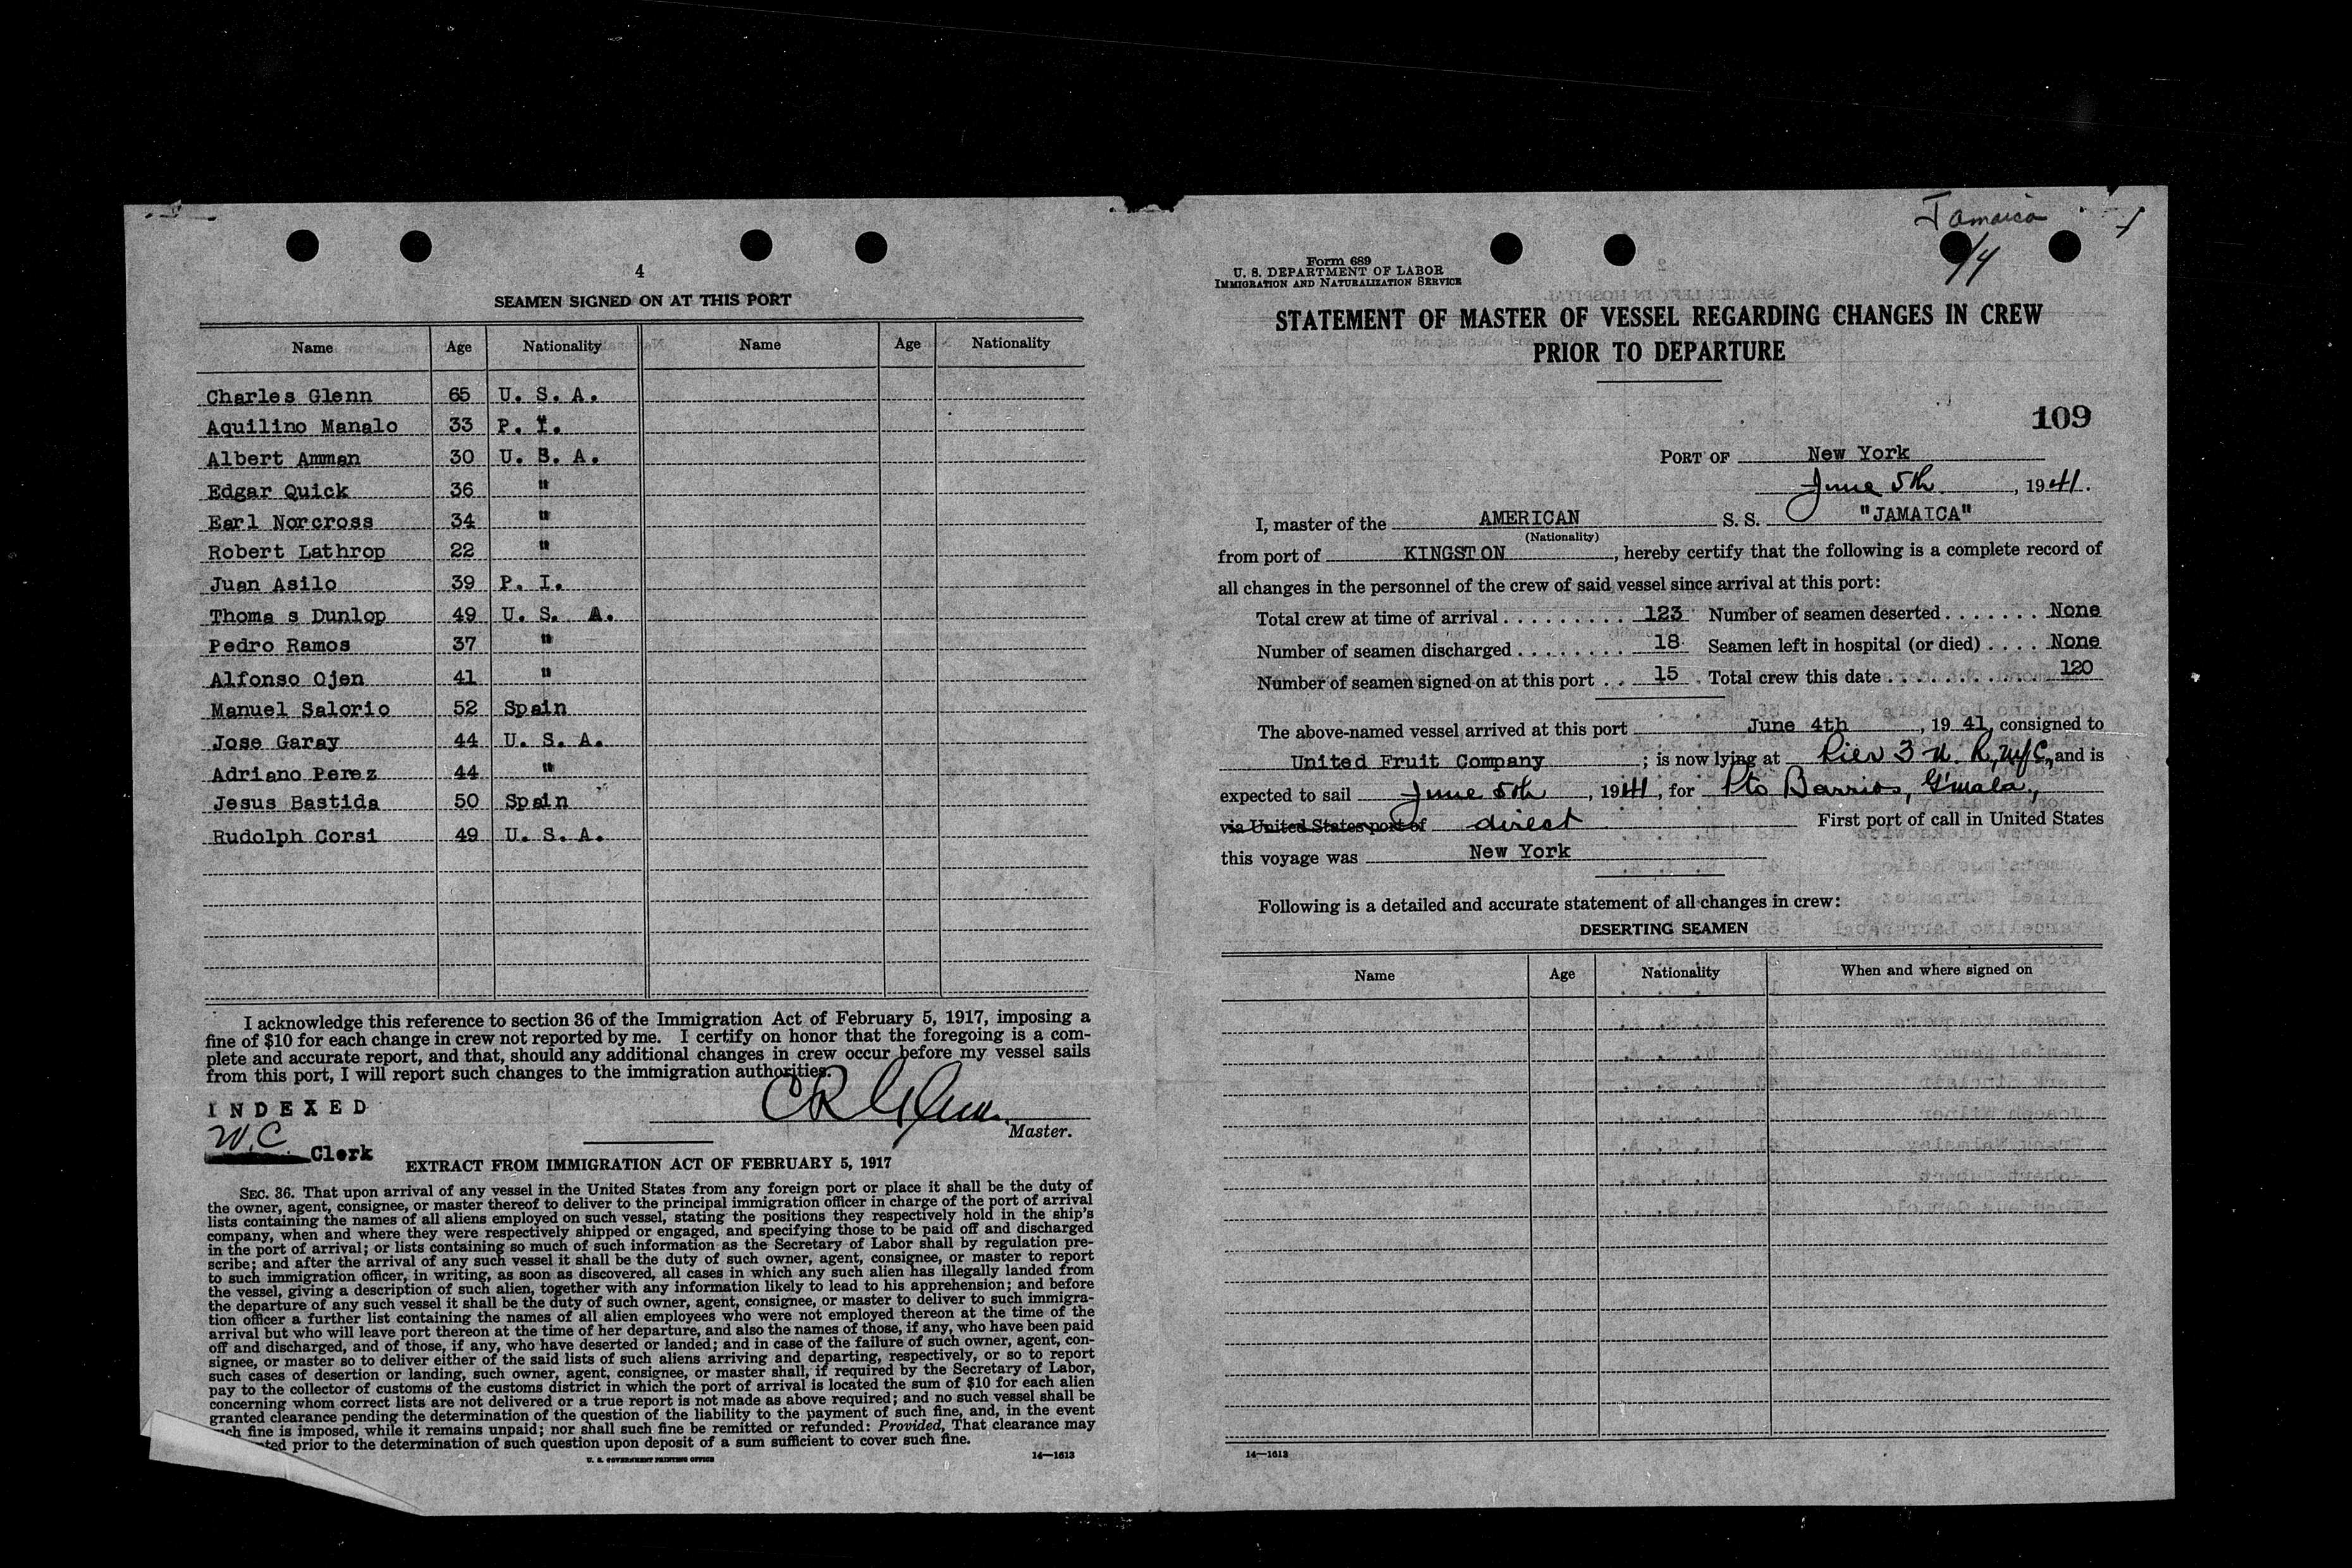 4
SEAMEN SIGNED ON AT THIS PORT
Name Age Nationality Name Age Nationality
Charles Glenn 65 U. S. A.
Aquilino Manalo 33 P. I.
Albert Amman 30 U. S. A.
Edgar Quick 36 "
Earl Norcross 34 "
Robert Lathrop 22 "
Juan Asilo 39 P. I.
Thoma s Dunlop 49 U. S. A.
Pedro Ramos 37 "
Alfonso Ojen 41 "
Manuel Salorio 52 Spain
Jose Garay 44 U. S. A.
Adriano Perez 44 "
Jesus Bastida 50 Spain
Rudolph Corsi 49 U. S. A.
I acknowledge this reference to section 36 of the Immigration Act of February 5, 1917, imposing a
fine of $10 for each change in crew not reported by me. I certify on honor that the foregoing is a com-
plete and accurate report, and that, should any additional changes in crew occur before my vessel sails
from this port, I will report such changes to the immigration authorities.
INDEXED
W.C. Clerk
Master.
EXTRACT FROM IMMIGRATION ACT OF FEBRUARY 5, 1917
SEC. 36. That upon arrival of any vessel in the United States from any foreign port or place it shall be the duty of
the owner, agent, consignee, or master thereof to deliver to the principal immigration officer in charge of the port of arrival
lists containing the names of all aliens employed on such vessel, stating the positions they respectively hold in the ship's
company, when and where they were respectively shipped or engaged, and specifying those to be paid off and discharged
in the port of arrival; or lists containing so much of such information as the Secretary of Labor shall by regulation pre-
scribe; and after the arrival of any such vessel it shall be the duty of such owner, agent, consignee, or master to report
to such immigration officer, in writing, as soon as discovered, all cases in which any such alien has illegally landed from
the vessel, giving a description of such alien, together with any information likely to lead to his apprehension; and before
the departure of any such vessel it shall be the duty of such owner, agent, consignee, or master to deliver to such immigra-
tion officer a further list containing the names of all alien employees who were not employed thereon at the time of the
arrival but who will leave port thereon at the time of her departure, and also the names of those, if any, who have been paid
off and discharged, and of those, if any, who have deserted or landed; and in case of the failure of such owner, agent, con-
signee, or master so to deliver either of the said lists of such aliens arriving and departing, respectively, or so to report
such cases of desertion or landing, such owner, agent, consignee, or master shall, if required by the Secretary of Labor,
pay to the collector of customs of the customs district in which the port of arrival is located the sum of $10 for each alien
concerning whom correct lists are not delivered or a true report is not made as above required; and no such vessel shall be
granted clearance pending the determination of the question of the liability to the payment of such fine, and, in the event
such fine is imposed, while it remains unpaid; nor shall such fine be remitted or refunded: Provided, That clearance may
prior to the determination of such question upon deposit of a sum sufficient to cover such fine.
U. S. GOVERNMENT PRINTING OFFICE 14—1613
Jamaica
6/4
Form 689
U. S. DEPARTMENT OF LABOR
IMMIGRATION AND NATURALIZATION SERVICE
STATEMENT OF MASTER OF VESSEL REGARDING CHANGES IN CREW
PRIOR TO DEPARTURE
109
PORT OF New York
June 5th, 1941.
I, master of the AMERICAN S. S. "JAMAICA"
(Nationality)
from port of KINGSTON, hereby certify that the following is a complete record of
all changes in the personnel of the crew of said vessel since arrival at this port:
Total crew at time of arrival 123 Number of seamen deserted None
Number of seamen discharged 18 Seamen left in hospital (or died) None
Number of seamen signed on at this port 15 Total crew this date 120
The above-named vessel arrived at this port June 4th, 1941, consigned to
United Fruit Company; is now lying at Pier 3 N. R., NYC, and is
expected to sail June 5th, 1941, for Pto Barrios, G'mala,
via United States port of direct First port of call in United States
this voyage was New York
Following is a detailed and accurate statement of all changes in crew:
DESERTING SEAMEN
Name Age Nationality When and where signed on
14—1613